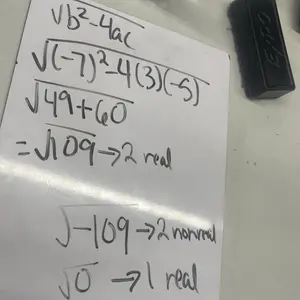 √b²-4ac
√(-7)²-4(3)(-5)
√49+60
=√109→2 real
√-109→2 nonreal
√0 →1 real